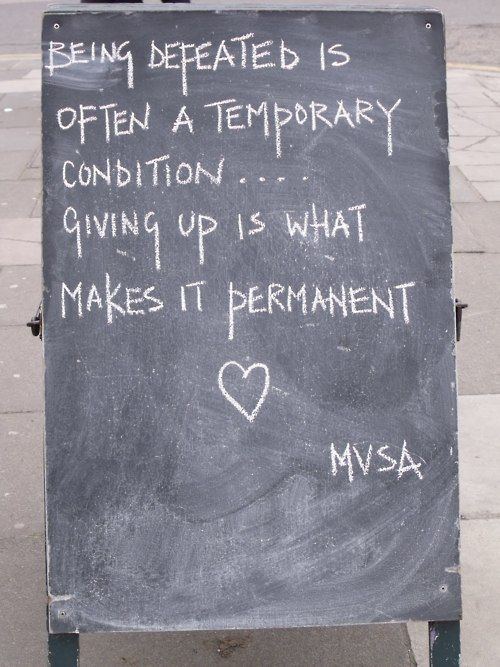 BEING DEFEATED IS
OFTEN A TEMPORARY
CONDITION ....
GIVING UP IS WHAT
MAKES IT PERMANENT
MVSA